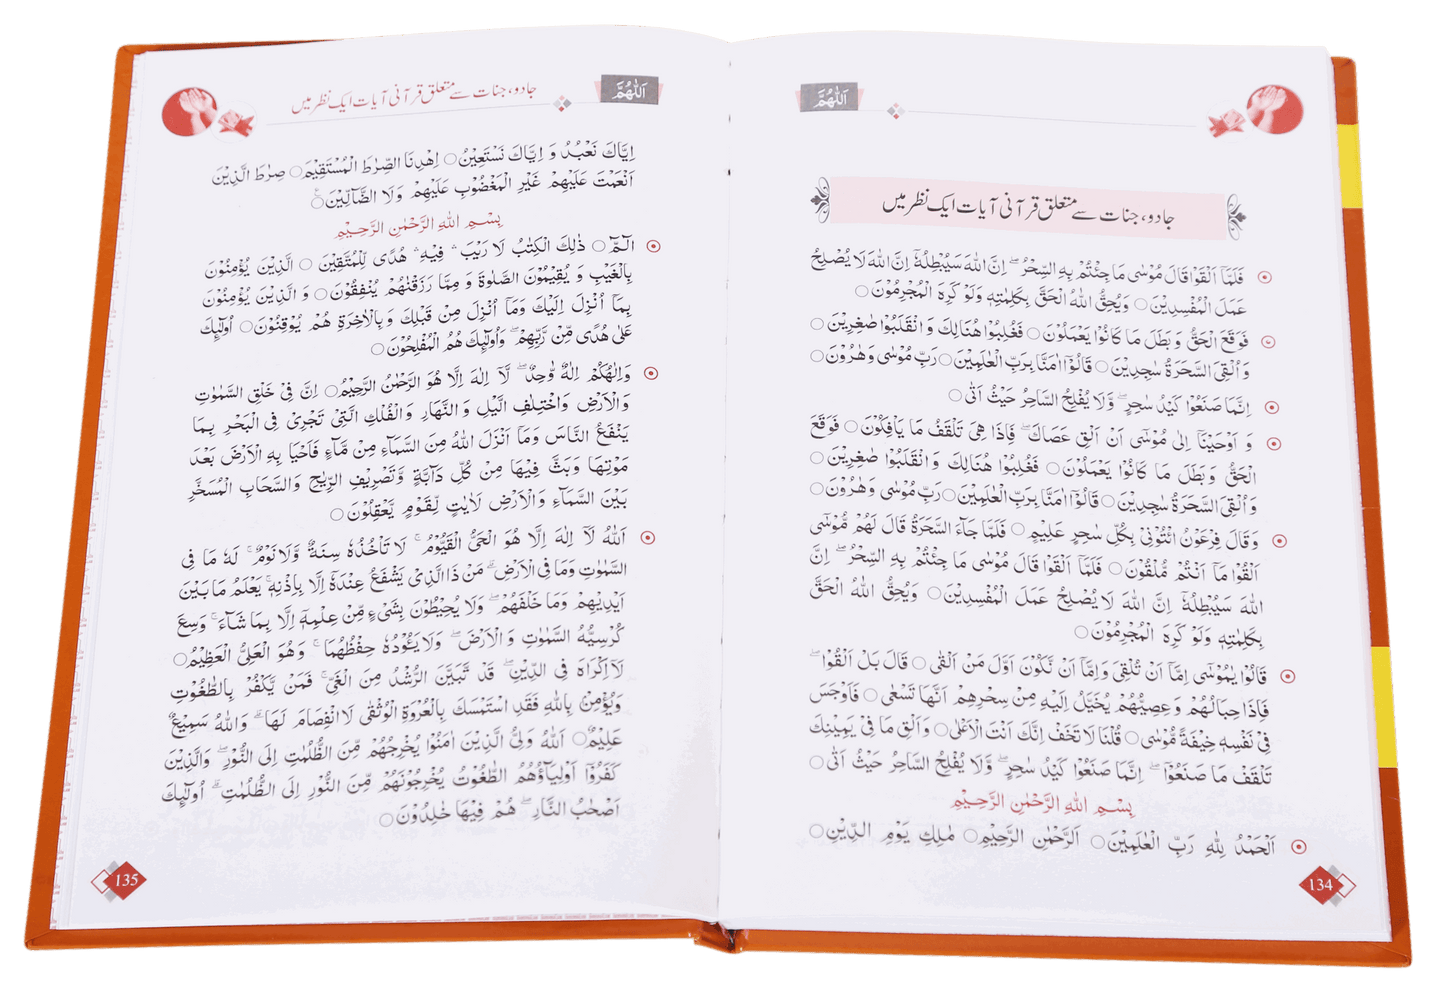 اَللّٰهُمَّ
جادو، جنات سے متعلق قرآنی آیات ایک نظر میں
فَلَمَّاۤ اَلْقَوْا قَالَ مُوْسٰى مَا جِئْتُمْ بِهِ السِّحْرُ ؕ اِنَّ اللّٰهَ سَيُبْطِلُهٗ اِنَّ اللّٰهَ لَا يُصْلِحُ
عَمَلَ الْمُفْسِدِيْنَ ○ وَيُحِقُّ اللّٰهُ الْحَقَّ بِكَلِمٰتِهٖ وَلَوْ كَرِهَ الْمُجْرِمُوْنَ ○
فَوَقَعَ الْحَقُّ وَبَطَلَ مَا كَانُوْا يَعْمَلُوْنَ ○ فَغُلِبُوْا هُنَالِكَ وَانْقَلَبُوْا صٰغِرِيْنَ ○
وَاُلْقِىَ السَّحَرَةُ سٰجِدِيْنَ ○ قَالُوْۤا اٰمَنَّا بِرَبِّ الْعٰلَمِيْنَ ○ رَبِّ مُوْسٰى وَهٰرُوْنَ ○
اِنَّمَا صَنَعُوْا كَيْدُ سٰحِرٍ ؕ وَّلَا يُفْلِحُ السَّاحِرُ حَيْثُ اَتٰى ○
وَ اَوْحَيْنَاۤ اِلٰى مُوْسٰۤى اَنْ اَلْقِ عَصَاكَ ؕ فَاِذَا هِىَ تَلْقَفُ مَا يَاْفِكُوْنَ ○ فَوَقَعَ
الْحَقُّ وَبَطَلَ مَا كَانُوْا يَعْمَلُوْنَ ○ فَغُلِبُوْا هُنَالِكَ وَانْقَلَبُوْا صٰغِرِيْنَ ○
وَاُلْقِىَ السَّحَرَةُ سٰجِدِيْنَ ○ قَالُوْۤا اٰمَنَّا بِرَبِّ الْعٰلَمِيْنَ ○ رَبِّ مُوْسٰى وَهٰرُوْنَ ○
وَقَالَ فِرْعَوْنُ ائْتُوْنِىْ بِكُلِّ سٰحِرٍ عَلِيْمٍ ○ فَلَمَّا جَآءَ السَّحَرَةُ قَالَ لَهُمْ مُّوْسٰۤى
اَلْقُوْا مَاۤ اَنْتُمْ مُّلْقُوْنَ ○ فَلَمَّاۤ اَلْقَوْا قَالَ مُوْسٰى مَا جِئْتُمْ بِهِ السِّحْرُ ؕ اِنَّ
اللّٰهَ سَيُبْطِلُهٗ اِنَّ اللّٰهَ لَا يُصْلِحُ عَمَلَ الْمُفْسِدِيْنَ ○ وَيُحِقُّ اللّٰهُ الْحَقَّ
بِكَلِمٰتِهٖ وَلَوْ كَرِهَ الْمُجْرِمُوْنَ ○
قَالُوْا يٰمُوْسٰۤى اِمَّاۤ اَنْ تُلْقِىَ وَاِمَّاۤ اَنْ نَّكُوْنَ اَوَّلَ مَنْ اَلْقٰى ○ قَالَ بَلْ اَلْقُوْا ؕ
فَاِذَا حِبَالُهُمْ وَعِصِيُّهُمْ يُخَيَّلُ اِلَيْهِ مِنْ سِحْرِهِمْ اَنَّهَا تَسْعٰى ○ فَاَوْجَسَ
فِىْ نَفْسِهٖ خِيْفَةً مُّوْسٰى ○ قُلْنَا لَا تَخَفْ اِنَّكَ اَنْتَ الْاَعْلٰى ○ وَاَلْقِ مَا فِىْ يَمِيْنِكَ
تَلْقَفْ مَا صَنَعُوْا ؕ اِنَّمَا صَنَعُوْا كَيْدُ سٰحِرٍ ؕ وَّلَا يُفْلِحُ السَّاحِرُ حَيْثُ اَتٰى ○
بِسْمِ اللّٰهِ الرَّحْمٰنِ الرَّحِيْمِ
اَلْحَمْدُ لِلّٰهِ رَبِّ الْعٰلَمِيْنَ ○ الرَّحْمٰنِ الرَّحِيْمِ ○ مٰلِكِ يَوْمِ الدِّيْنِ ○
134
اَللّٰهُمَّ
جادو، جنات سے متعلق قرآنی آیات ایک نظر میں
اِيَّاكَ نَعْبُدُ وَ اِيَّاكَ نَسْتَعِيْنُ ○ اِهْدِنَا الصِّرٰطَ الْمُسْتَقِيْمَ ○ صِرٰطَ الَّذِيْنَ
اَنْعَمْتَ عَلَيْهِمْ غَيْرِ الْمَغْضُوْبِ عَلَيْهِمْ وَلَا الضَّآلِّيْنَ ○
بِسْمِ اللّٰهِ الرَّحْمٰنِ الرَّحِيْمِ
الٓمّٓ ○ ذٰلِكَ الْكِتٰبُ لَا رَيْبَ ۛ فِيْهِ ۛ هُدًى لِّلْمُتَّقِيْنَ ○ الَّذِيْنَ يُؤْمِنُوْنَ
بِالْغَيْبِ وَ يُقِيْمُوْنَ الصَّلٰوةَ وَ مِمَّا رَزَقْنٰهُمْ يُنْفِقُوْنَ ○ وَ الَّذِيْنَ يُؤْمِنُوْنَ
بِمَاۤ اُنْزِلَ اِلَيْكَ وَمَاۤ اُنْزِلَ مِنْ قَبْلِكَ وَبِالْاٰخِرَةِ هُمْ يُوْقِنُوْنَ ○ اُولٰٓئِكَ
عَلٰى هُدًى مِّنْ رَّبِّهِمْ ؕ وَاُولٰٓئِكَ هُمُ الْمُفْلِحُوْنَ ○
وَاِلٰهُكُمْ اِلٰهٌ وَّاحِدٌ ؕ لَاۤ اِلٰهَ اِلَّا هُوَ الرَّحْمٰنُ الرَّحِيْمُ ○ اِنَّ فِىْ خَلْقِ السَّمٰوٰتِ
وَالْاَرْضِ وَاخْتِلٰفِ الَّيْلِ وَالنَّهَارِ وَالْفُلْكِ الَّتِىْ تَجْرِىْ فِى الْبَحْرِ بِمَا
يَنْفَعُ النَّاسَ وَمَاۤ اَنْزَلَ اللّٰهُ مِنَ السَّمَآءِ مِنْ مَّآءٍ فَاَحْيَا بِهِ الْاَرْضَ بَعْدَ
مَوْتِهَا وَبَثَّ فِيْهَا مِنْ كُلِّ دَآبَّةٍ وَّتَصْرِيْفِ الرِّيٰحِ وَالسَّحَابِ الْمُسَخَّرِ
بَيْنَ السَّمَآءِ وَالْاَرْضِ لَاٰيٰتٍ لِّقَوْمٍ يَّعْقِلُوْنَ ○
اَللّٰهُ لَاۤ اِلٰهَ اِلَّا هُوَ الْحَىُّ الْقَيُّوْمُ ۚ لَا تَاْخُذُهٗ سِنَةٌ وَّلَا نَوْمٌ ؕ لَهٗ مَا فِى
السَّمٰوٰتِ وَمَا فِى الْاَرْضِ ؕ مَنْ ذَا الَّذِىْ يَشْفَعُ عِنْدَهٗۤ اِلَّا بِاِذْنِهٖ ؕ يَعْلَمُ مَا بَيْنَ
اَيْدِيْهِمْ وَمَا خَلْفَهُمْ ؕ وَلَا يُحِيْطُوْنَ بِشَىْءٍ مِّنْ عِلْمِهٖۤ اِلَّا بِمَا شَآءَ ۚ وَسِعَ
كُرْسِيُّهُ السَّمٰوٰتِ وَالْاَرْضَ ؕ وَلَا يَـُٔوْدُهٗ حِفْظُهُمَا ۚ وَهُوَ الْعَلِىُّ الْعَظِيْمُ ○
لَاۤ اِكْرَاهَ فِى الدِّيْنِ ؕ قَدْ تَّبَيَّنَ الرُّشْدُ مِنَ الْغَىِّ ۚ فَمَنْ يَّكْفُرْ بِالطَّاغُوْتِ
وَيُؤْمِنْۢ بِاللّٰهِ فَقَدِ اسْتَمْسَكَ بِالْعُرْوَةِ الْوُثْقٰى لَا انْفِصَامَ لَهَا ؕ وَاللّٰهُ سَمِيْعٌ
عَلِيْمٌ ○ اَللّٰهُ وَلِىُّ الَّذِيْنَ اٰمَنُوْا يُخْرِجُهُمْ مِّنَ الظُّلُمٰتِ اِلَى النُّوْرِ ؕ وَالَّذِيْنَ
كَفَرُوْۤا اَوْلِيٰٓـُٔهُمُ الطَّاغُوْتُ يُخْرِجُوْنَهُمْ مِّنَ النُّوْرِ اِلَى الظُّلُمٰتِ ؕ اُولٰٓئِكَ
اَصْحٰبُ النَّارِ ۚ هُمْ فِيْهَا خٰلِدُوْنَ ○
135